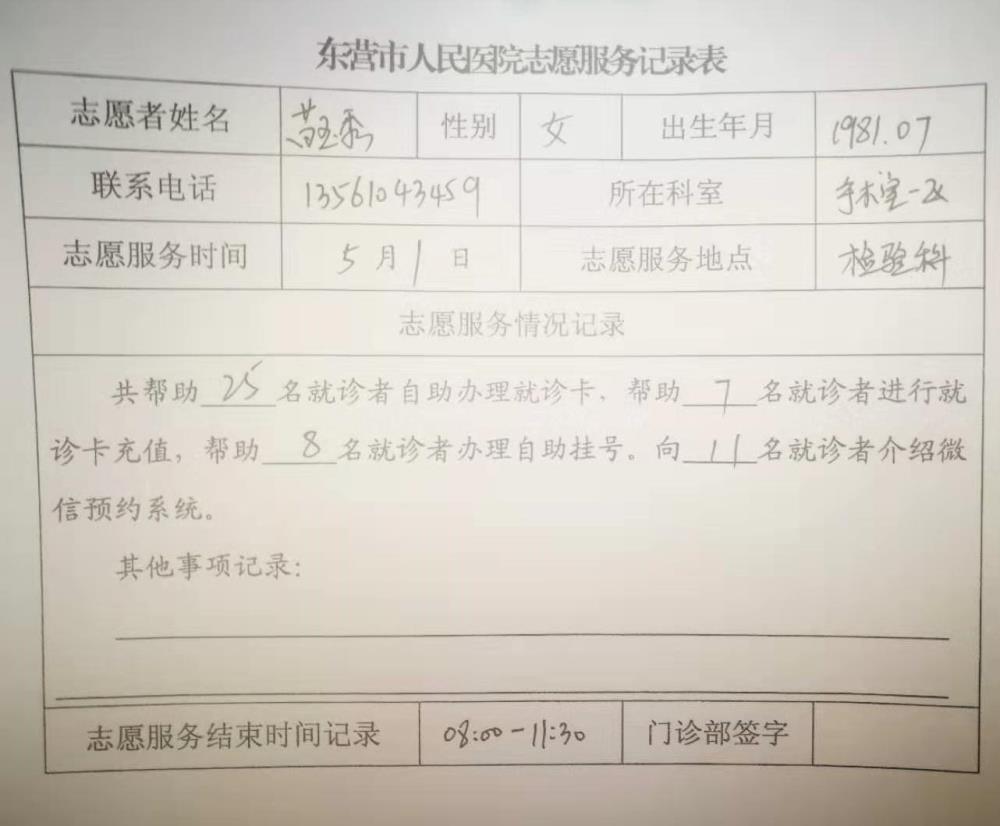 东营市人民医院志愿服务记录表
志愿者姓名 性别 女 出生年月 1981.07
联系电话 13561043459 所在科室 手术室一区
志愿服务时间 5月1日 志愿服务地点 检验科
志愿服务情况记录
共帮助25名就诊者自助办理就诊卡，帮助7名就诊者进行就
诊卡充值，帮助8名就诊者办理自助挂号。向11名就诊者介绍微
信预约系统。
其他事项记录：
志愿服务结束时间记录 08:00-11:30 门诊部签字